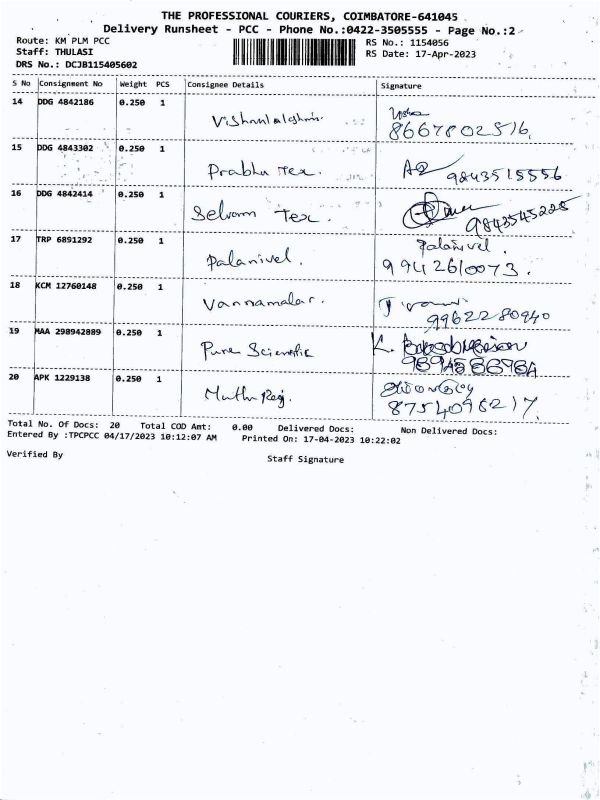 THE PROFESSIONAL COURIERS, COIMBATORE-641045
Delivery Runsheet - PCC - Phone No.:0422-3505555 - Page No.:2
Route: KM PLM PCC
RS No.: 1154056
Staff: THULASI
RS Date: 17-Apr-2023
DRS No.: DCJB115405602
S No Consignment No Weight PCS Consignee Details Signature
14 DDG 4842186 0.250 1
8667802516.
15 DDG 4843302 0.250 1
Prabhu Tex.
9843515556
16 DDG 4842414 0.250 1
Selvam Tex.
9843545225
17 TRP 6891292 0.250 1 Palanivel.
Palanivel.
9942610073.
18 KCM 12760148 0.250 1
Vannamalar.
9962280940
19 MAA 298942889 0.250 1
Pure Scientific
20 APK 1229138 0.250 1
Muthu Raj.
8754096217.
Total No. Of Docs: 20 Total COD Amt: 0.00 Delivered Docs: Non Delivered Docs:
Entered By :TPCPCC 04/17/2023 10:12:07 AM Printed On: 17-04-2023 10:22:02
Verified By
Staff Signature